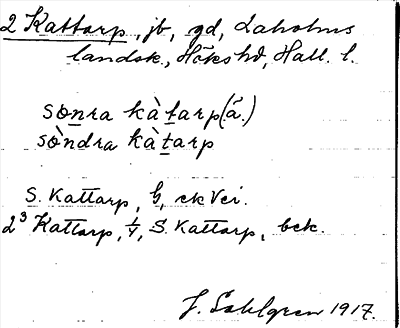 2 Kattarp, jb, gd, Laholms
landsk., Höks hd, Hall. l.
sònra kàtarp(ä.)
sòndra kàtarp
S. Kattarp, by, ek Vei.
2³ Kattarp, 1/4, S. Kattarp, bek.
J. Sahlgren 1917.